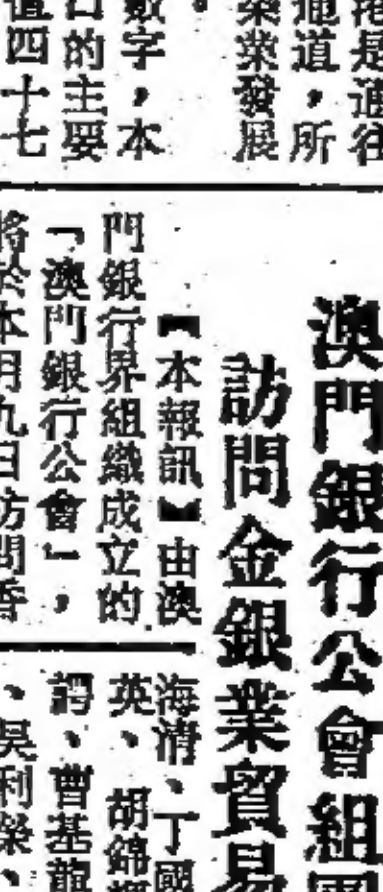 港是通往
通道，所
築業發展
數字，本
口的主要
值四十七
澳門銀行公會組團
訪問金銀業貿易
【本報訊】由澳
門銀行界組織成立的
「澳門銀行公會」，
將於本月九日訪問香
海清、丁國
英、胡錦
諤、曹基龍
、吳利榮、